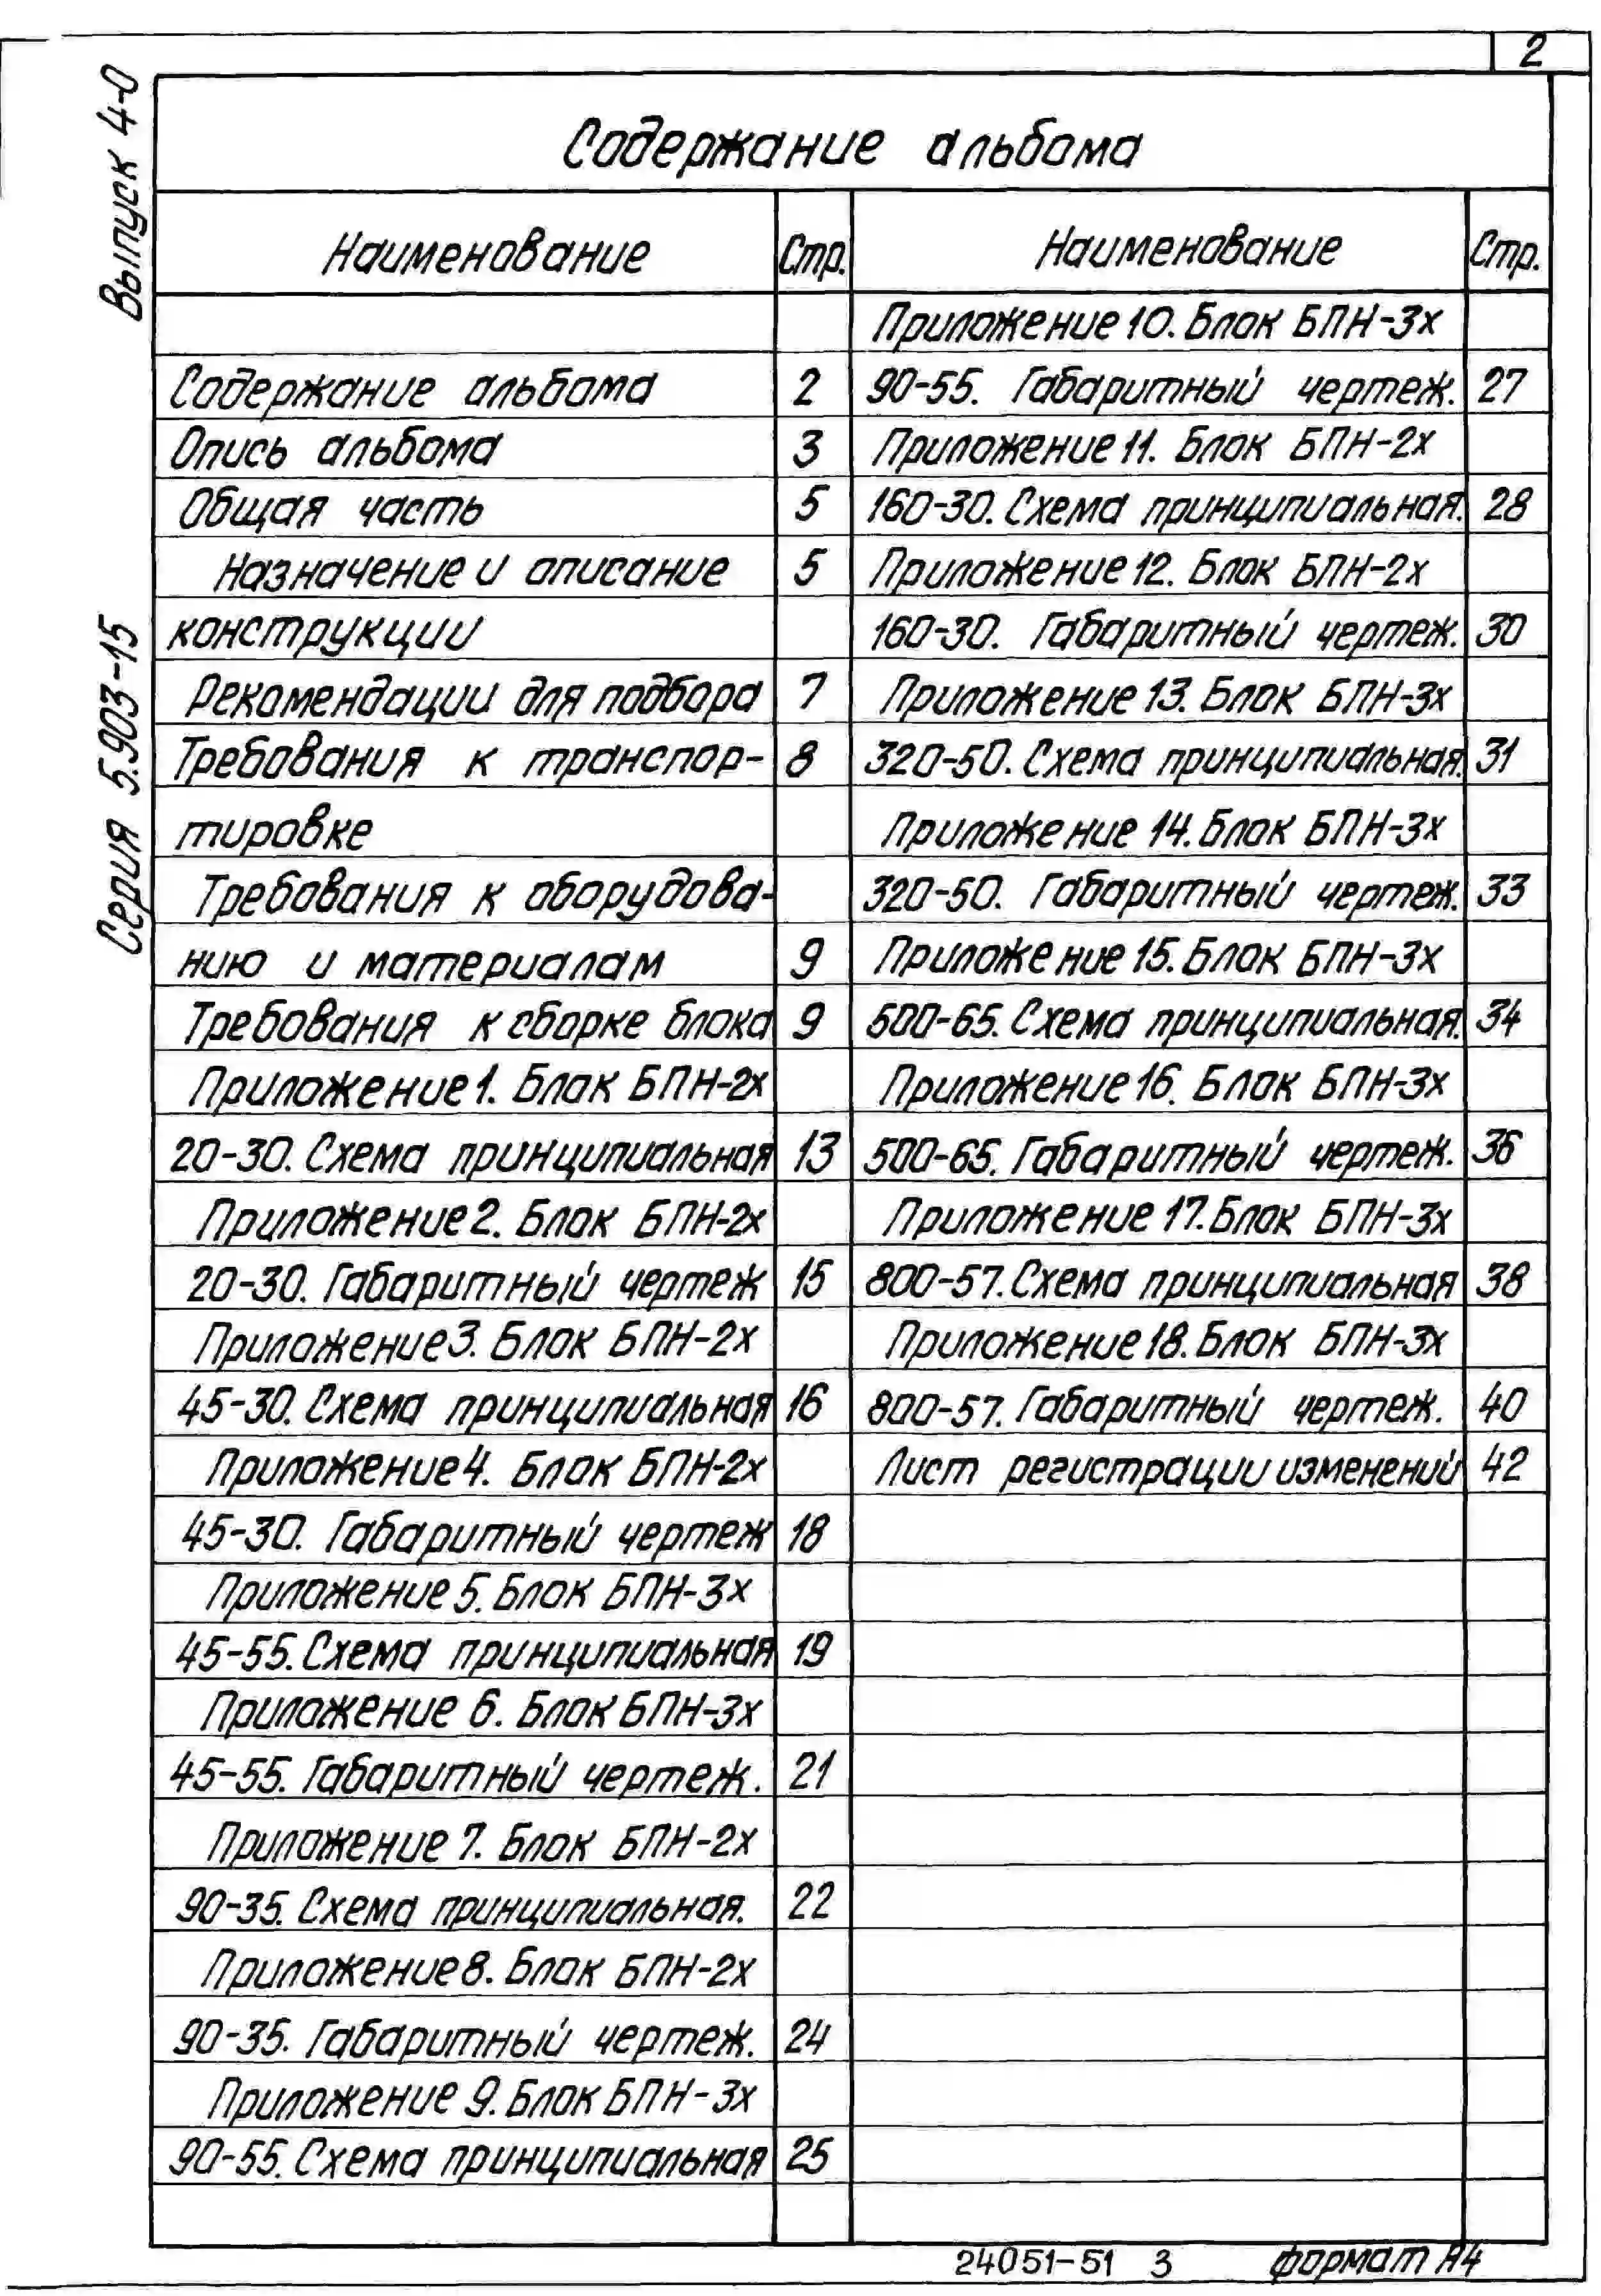 2
Выпуск 4-0
Серия 5.903-15
Содержание альбома
Наименование Стр.
Содержание альбома 2
Опись альбома 3
Общая часть 5
Назначение и описание 5
конструкции
Рекомендации для подбора 7
Требования к транспор- 8
тировке
Требования к оборудова-
нию и материалам 9
Требования к сборке блока 9
Приложение 1. Блок БПН-2х
20-30. Схема принципиальная 13
Приложение 2. Блок БПН-2х
20-30. Габаритный чертеж 15
Приложение 3. Блок БПН-2х
45-30. Схема принципиальная 16
Приложение 4. Блок БПН-2х
45-30. Габаритный чертеж 18
Приложение 5. Блок БПН-3х
45-55. Схема принципиальная 19
Приложение 6. Блок БПН-3х
45-55. Габаритный чертеж. 21
Приложение 7. Блок БПН-2х
90-35. Схема принципиальная. 22
Приложение 8. Блок БПН-2х
90-35. Габаритный чертеж. 24
Приложение 9. Блок БПН-3х
90-55. Схема принципиальная 25
Наименование Стр.
Приложение 10. Блок БПН-3х
90-55. Габаритный чертеж. 27
Приложение 11. Блок БПН-2х
160-30. Схема принципиальная. 28
Приложение 12. Блок БПН-2х
160-30. Габаритный чертеж. 30
Приложение 13. Блок БПН-3х
320-50. Схема принципиальная. 31
Приложение 14. Блок БПН-3х
320-50. Габаритный чертеж. 33
Приложение 15. Блок БПН-3х
500-65. Схема принципиальная. 34
Приложение 16. Блок БПН-3х
500-65. Габаритный чертеж. 36
Приложение 17. Блок БПН-3х
800-57. Схема принципиальная 38
Приложение 18. Блок БПН-3х
800-57. Габаритный чертеж. 40
Лист регистрации изменений 42
24051-51 3 формат А4